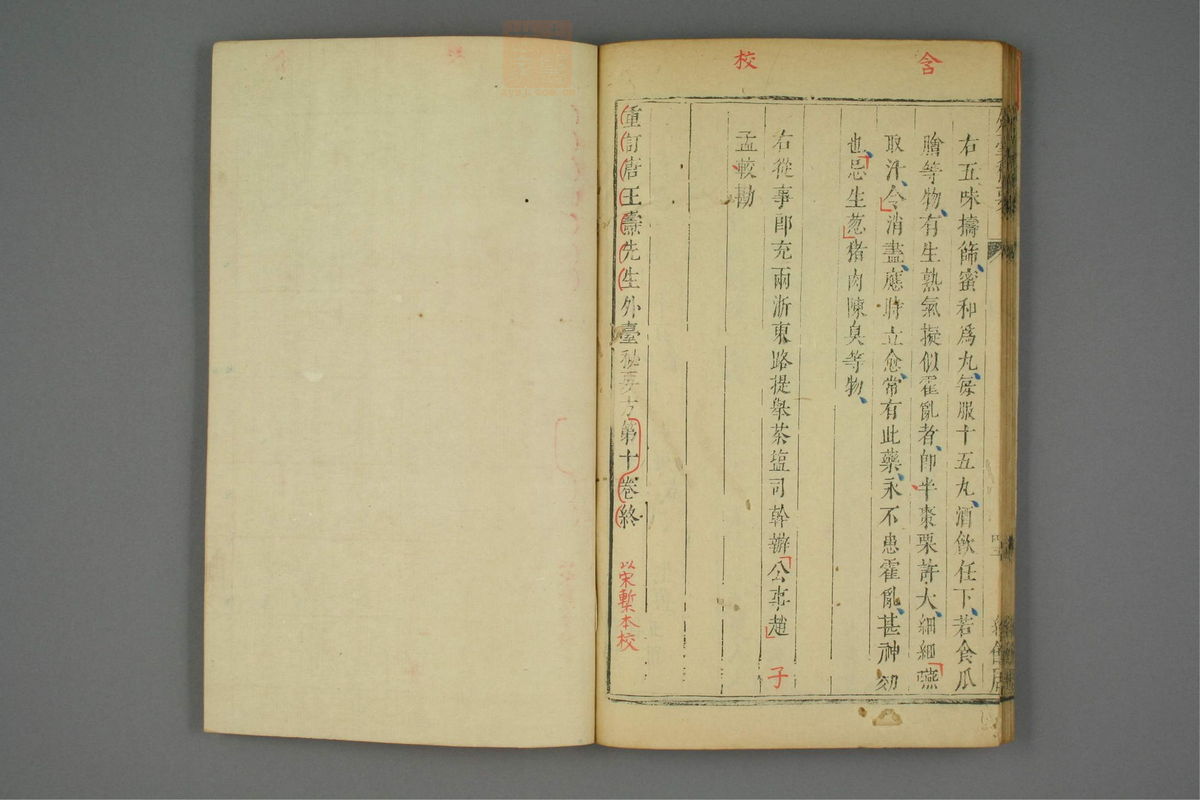 含
校
右五味擣篩蜜和爲丸每服十五丸酒飲任下若食瓜
膾等物有生熟氣擬似霍亂者卽半棗栗許大細細嚥
取汁令消盡應時立愈常有此藥永不患霍亂甚神効
也忌生葱猪肉陳臭等物
右從事郎充兩浙東路提舉茶塩司幹辦公事趙
子
孟較勘
重訂唐王燾先生外臺秘要方第十卷終
以宋槧本校